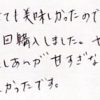 ても美味しかったので
回購入しました。サ
しあんが甘すぎな
かったです。